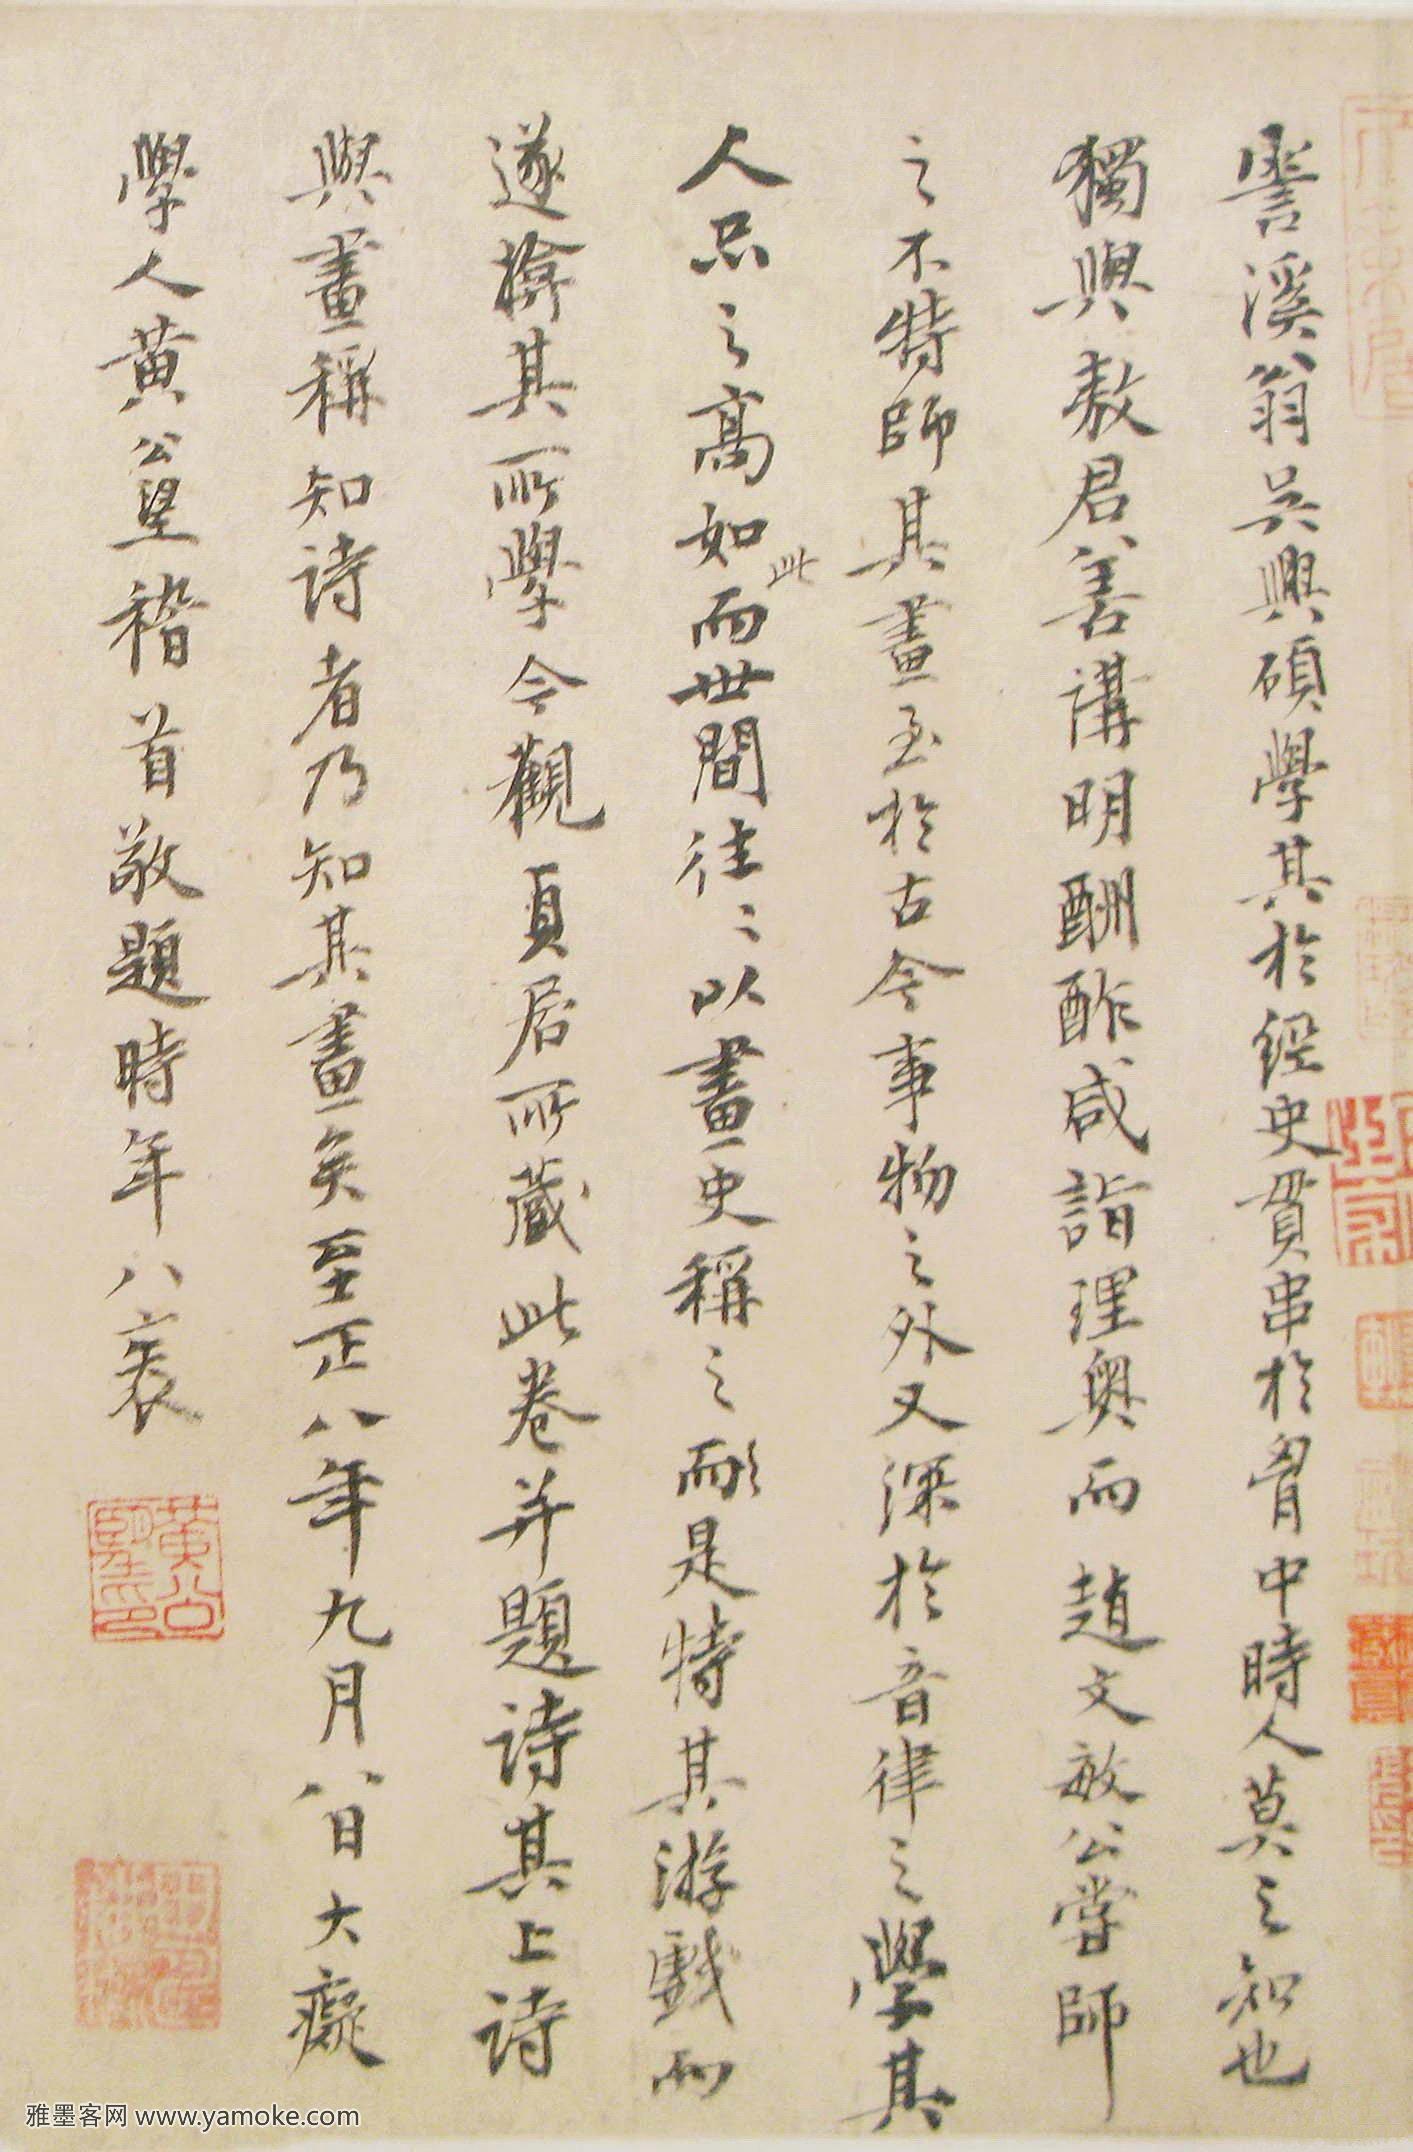 霅溪翁吳興碩學其於經史貫串於胷中時人莫之知也
獨與敖君善講明酬酢咸詣理奧而趙文敏公嘗師
之不特師其畫至於古今事物之外又深於音律之學其
人品之高如此而世間往〻以畫史稱之是特其游戲而
遂揜其所學今觀貞居所藏此卷并題詩其上詩
與畫稱知詩者乃知其畫矣至正八年九月八日大癡
學人黄公望稽首敬題時年八袠
黄公望印
雅墨客网 www.yamoke.com